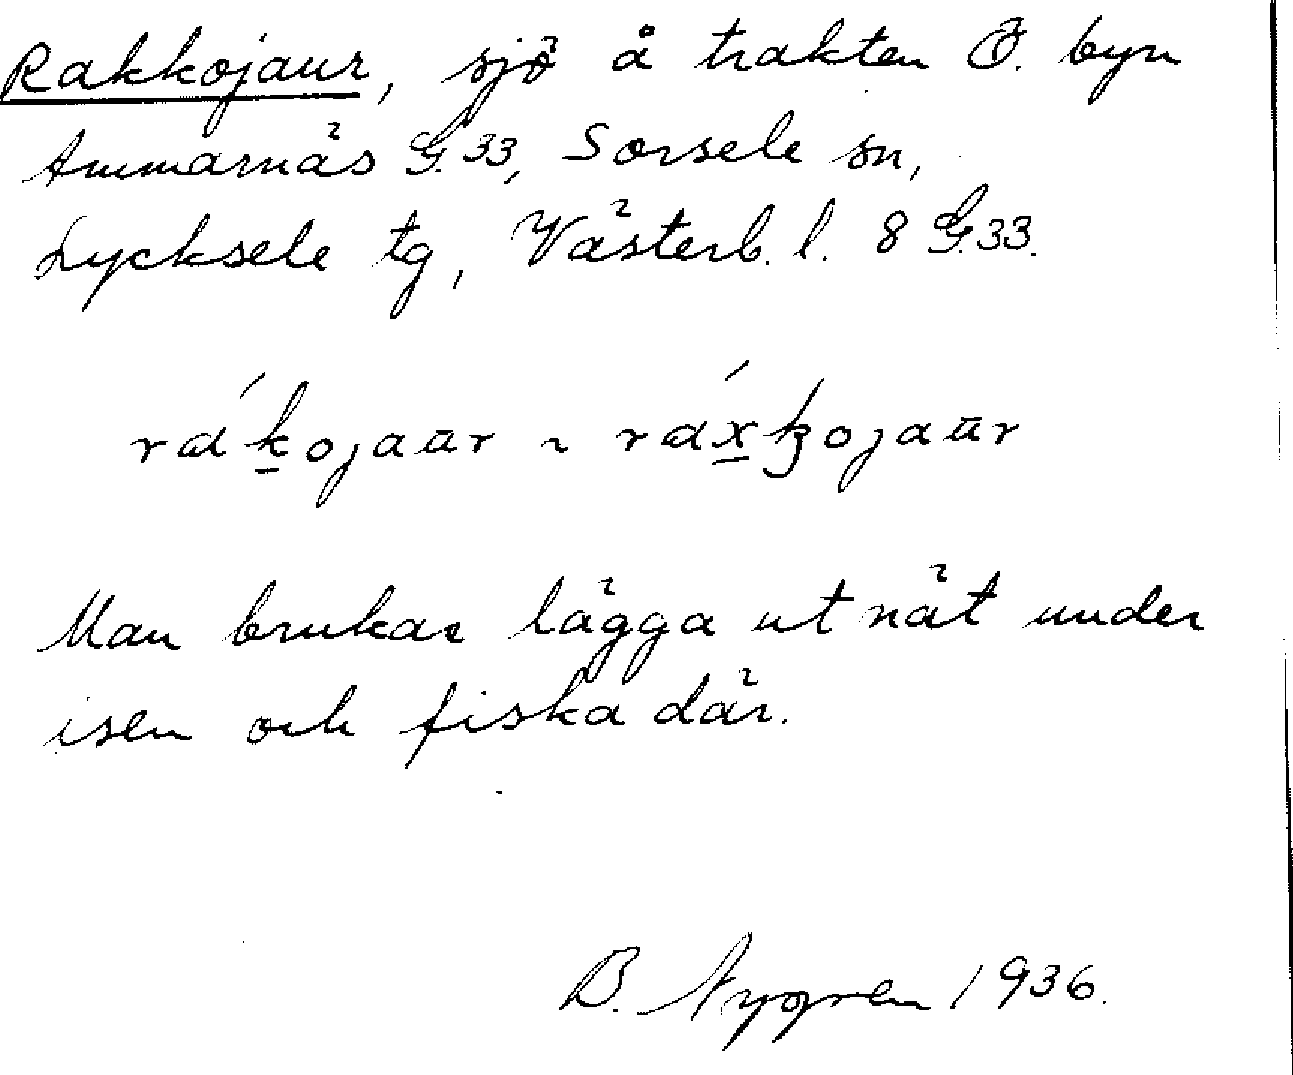 Rakkojaur, sjö å trakten Ö. byn
Ammarnäs G.33, Sorsele sn,
Lycksele tg, Västerb. l. 8 G.33.
rɑ́k̠ojaūr ~ rɑx̠́ꞣojaūr
Man brukar lägga ut nät under
isen och fiska där.
B. Nygren 1936.